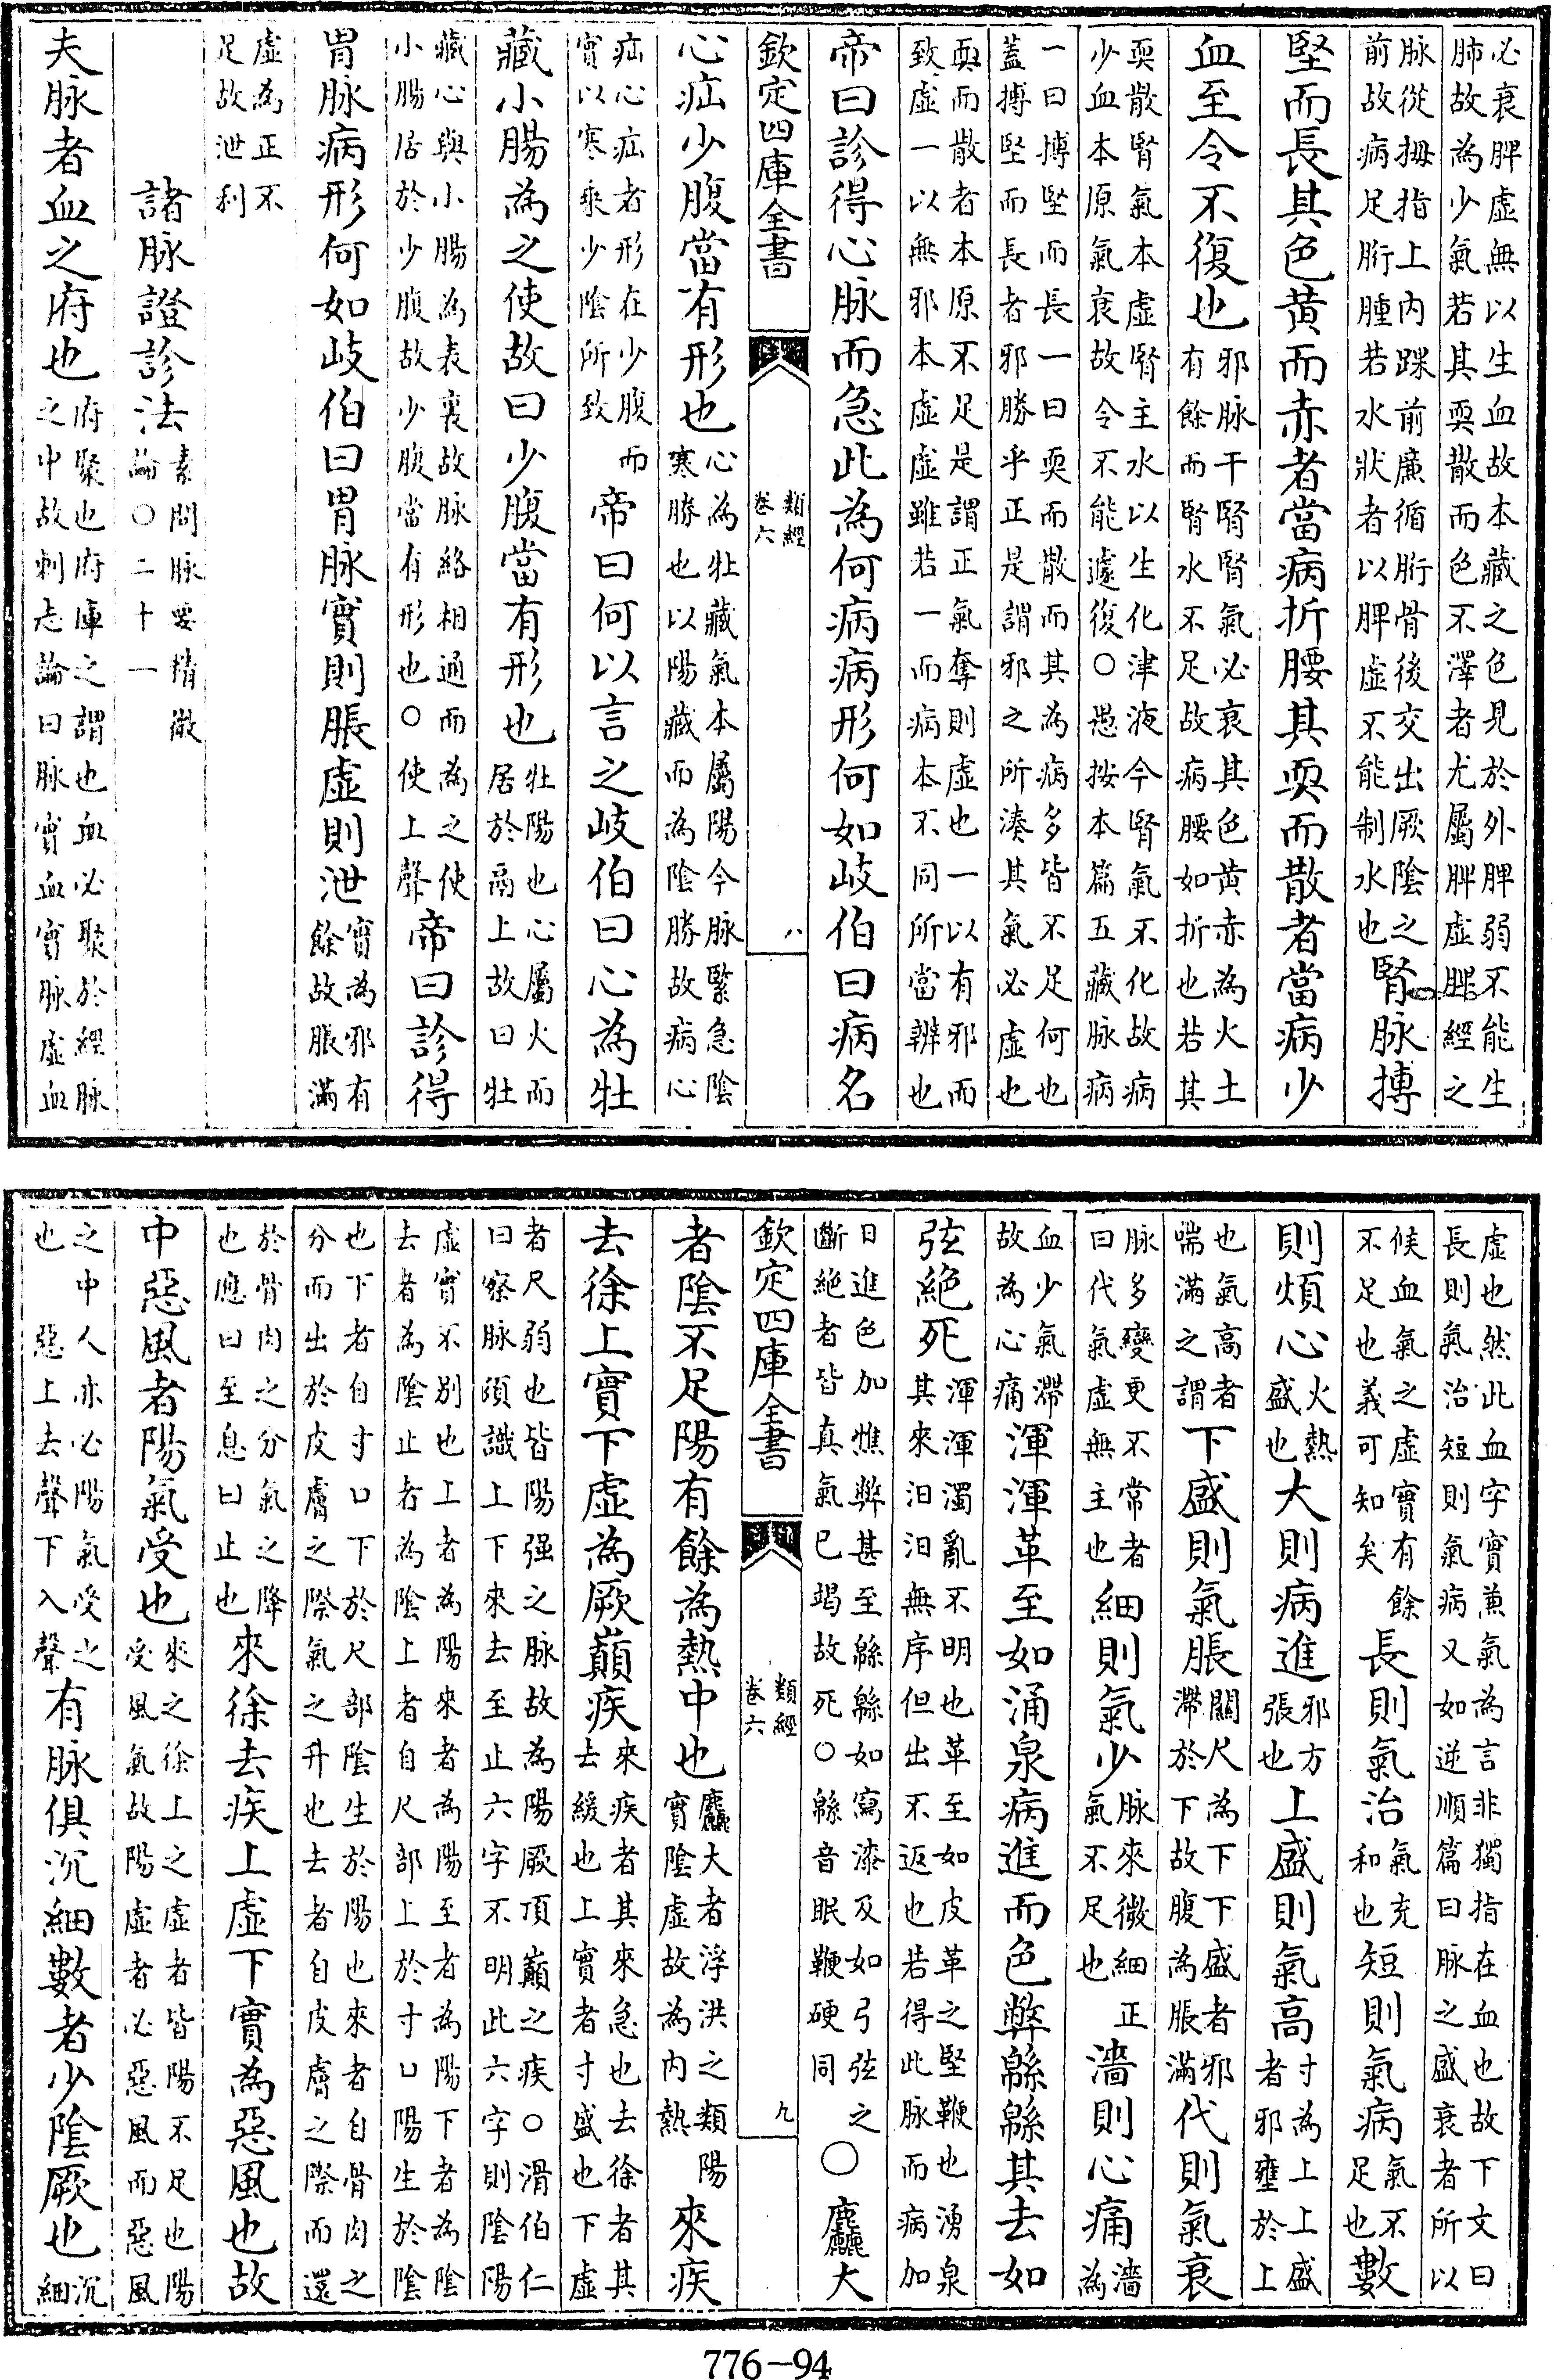 必衰脾虚無以生血故本藏之色見於外脾弱不能生
肺故為少氣若其耎散而色不澤者尤屬脾虚脾經之
脉從拇指上内踝前廉循胻骨後交出厥陰之
前故病足胻腫若水狀者以脾虚不能制水也
腎脉搏
堅而長其色黄而赤者當病折腰其耎而散者當病少
血至令不復也
邪脉干腎腎氣必衰其色黄赤為火土
有餘而腎水不足故病腰如折也若其
耎散腎氣本虚腎主水以生化津液今腎氣不化故病
少血本原氣衰故令不能遽復○愚按本篇五藏脉病
一曰搏堅而長一曰耎而散而其為病多皆不足何也
蓋搏堅而長者邪勝乎正是謂邪之所湊其氣必虚也
耎而散者本原不足是謂正氣奪則虚也一以有邪而
致虚一以無邪本虚虚雖若一而病本不同所當辨也
帝曰診得心脉而急此為何病病形何如岐伯曰病名
欽定四庫全書
類經
卷六
八
心疝少腹當有形也
心為牡藏氣本屬陽今脉緊急陰
寒勝也以陽藏而為陰勝故病心
疝心疝者形在少腹而
實以寒乘少陰所致
帝曰何以言之岐伯曰心為牡
藏小腸為之使故曰少腹當有形也
牡陽也心屬火而
居於鬲上故曰牡
藏心與小腸為表裏故脉絡相通而為之使
小腸居於少腹故少腹當有形也○使上聲
帝曰診得
胃脉病形何如岐伯曰胃脉實則脹虚則泄
實為邪有
餘故脹滿
虚為正不
足故泄利
諸脉證診法
素問脉要精微
論○二十一
夫脉者血之府也
府聚也府庫之謂也血必聚於經脉
之中故刺志論曰脉實血實脉虚血
虚也然此血字實兼氣為言非獨指在血也故下文曰
長則氣治短則氣病又如逆順篇曰脉之盛衰者所以
候血氣之虚實有餘
不足也義可知矣
長則氣治
氣充
和也
短則氣病
氣不
足也
數
則煩心
火熱
盛也
大則病進
邪方
張也
上盛則氣高
寸為上上盛
者邪壅於上
也氣高者
喘滿之謂
下盛則氣脹
關尺為下下盛者邪
滯於下故腹為脹滿
代則氣衰
脉多變更不常者
曰代氣虚無主也
細則氣少
脉來微細正
氣不足也
濇則心痛
濇為
血少氣滯
故為心痛
渾渾革至如涌泉病進而色弊緜緜其去如
弦絶死
渾渾濁亂不明也革至如皮革之堅鞕也湧泉
其來汩汩無序但出不返也若得此脉而病加
日進色加憔弊甚至緜緜如寫漆及如弓弦之
斷絶者皆真氣已竭故死○緜音眠鞕硬同
○麤大
欽定四庫全書
類經
卷六
九
者陰不足陽有餘為熱中也
麤大者浮洪之類陽
實陰虚故為内熱
來疾
去徐上實下虚為厥巔疾
來疾者其來急也去徐者其
去緩也上實者寸盛也下虚
者尺弱也皆陽强之脉故為陽厥頂巔之疾○滑伯仁
曰察脉須識上下來去至止六字不明此六字則陰陽
虚實不别也上者為陽來者為陽至者為陽下者為陰
去者為陰止者為陰上者自尺部上於寸口陽生於陰
也下者自寸口下於尺部陰生於陽也來者自骨肉之
分而出於皮膚之際氣之升也去者自皮膚之際而還
於骨肉之分氣之降
也應曰至息曰止也
來徐去疾上虚下實為惡風也故
中惡風者陽氣受也
來之徐上之虚者皆陽不足也陽
受風氣故陽虚者必惡風而惡風
之中人亦必陽氣受之
也惡上去聲下入聲
有脉俱沉細數者少陰厥也
沉
細
776-94